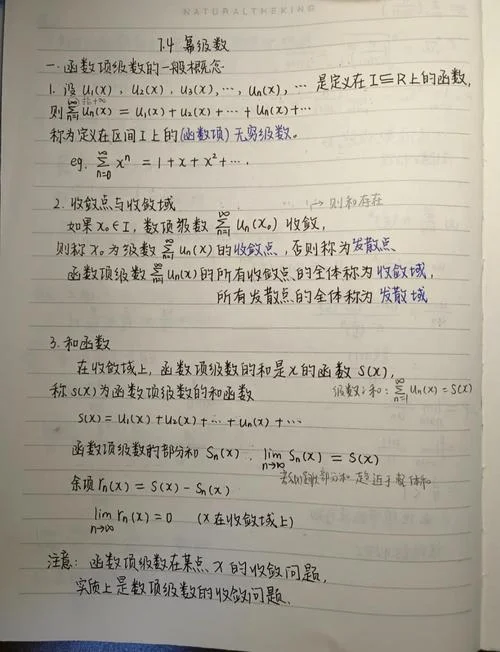 NATURALTHEKING
7.4 幂级数
一. 函数项级数的一般概念
1. 设 u₁(x), u₂(x), u₃(x), ⋯, uₙ(x), ⋯ 是定义在 I⊆R 上的函数,
则 ∑_{n=1}^{∞} uₙ(x) = u₁(x) + u₂(x) + ⋯ + uₙ(x) + ⋯
称为定义在区间 I 上的 (函数项) 无穷级数。
eg. ∑_{n=0}^{∞} xⁿ = 1 + x + x² + ⋯.
2. 收敛点与收敛域 → 则和存在
如果 x₀∈I, 数项级数 ∑_{n=1}^{∞} uₙ(x₀) 收敛,
则称 x₀ 为级数 ∑_{n=1}^{∞} uₙ(x) 的收敛点, 否则称为发散点
函数项级数 ∑_{n=1}^{∞} uₙ(x) 的所有收敛点的全体称为收敛域,
所有发散点的全体称为 发散域
3. 和函数
在收敛域上, 函数项级数的和是 x 的函数 S(x),
称 S(x) 为函数项级数的和函数 级数之和: ∑_{n=1}^{∞} uₙ(x) = S(x)
S(x) = u₁(x) + u₂(x) + ⋯ + uₙ(x) + ⋯
函数项级数的部分和 Sₙ(x). lim_{n→∞} Sₙ(x) = S(x)
部分和 趋近于整体和
余项 rₙ(x) = S(x) − Sₙ(x)
lim_{n→∞} rₙ(x) = 0 (x 在收敛域上)
注意: 函数项级数在某点 x 的收敛问题,
实质上是数项级数的收敛问题.